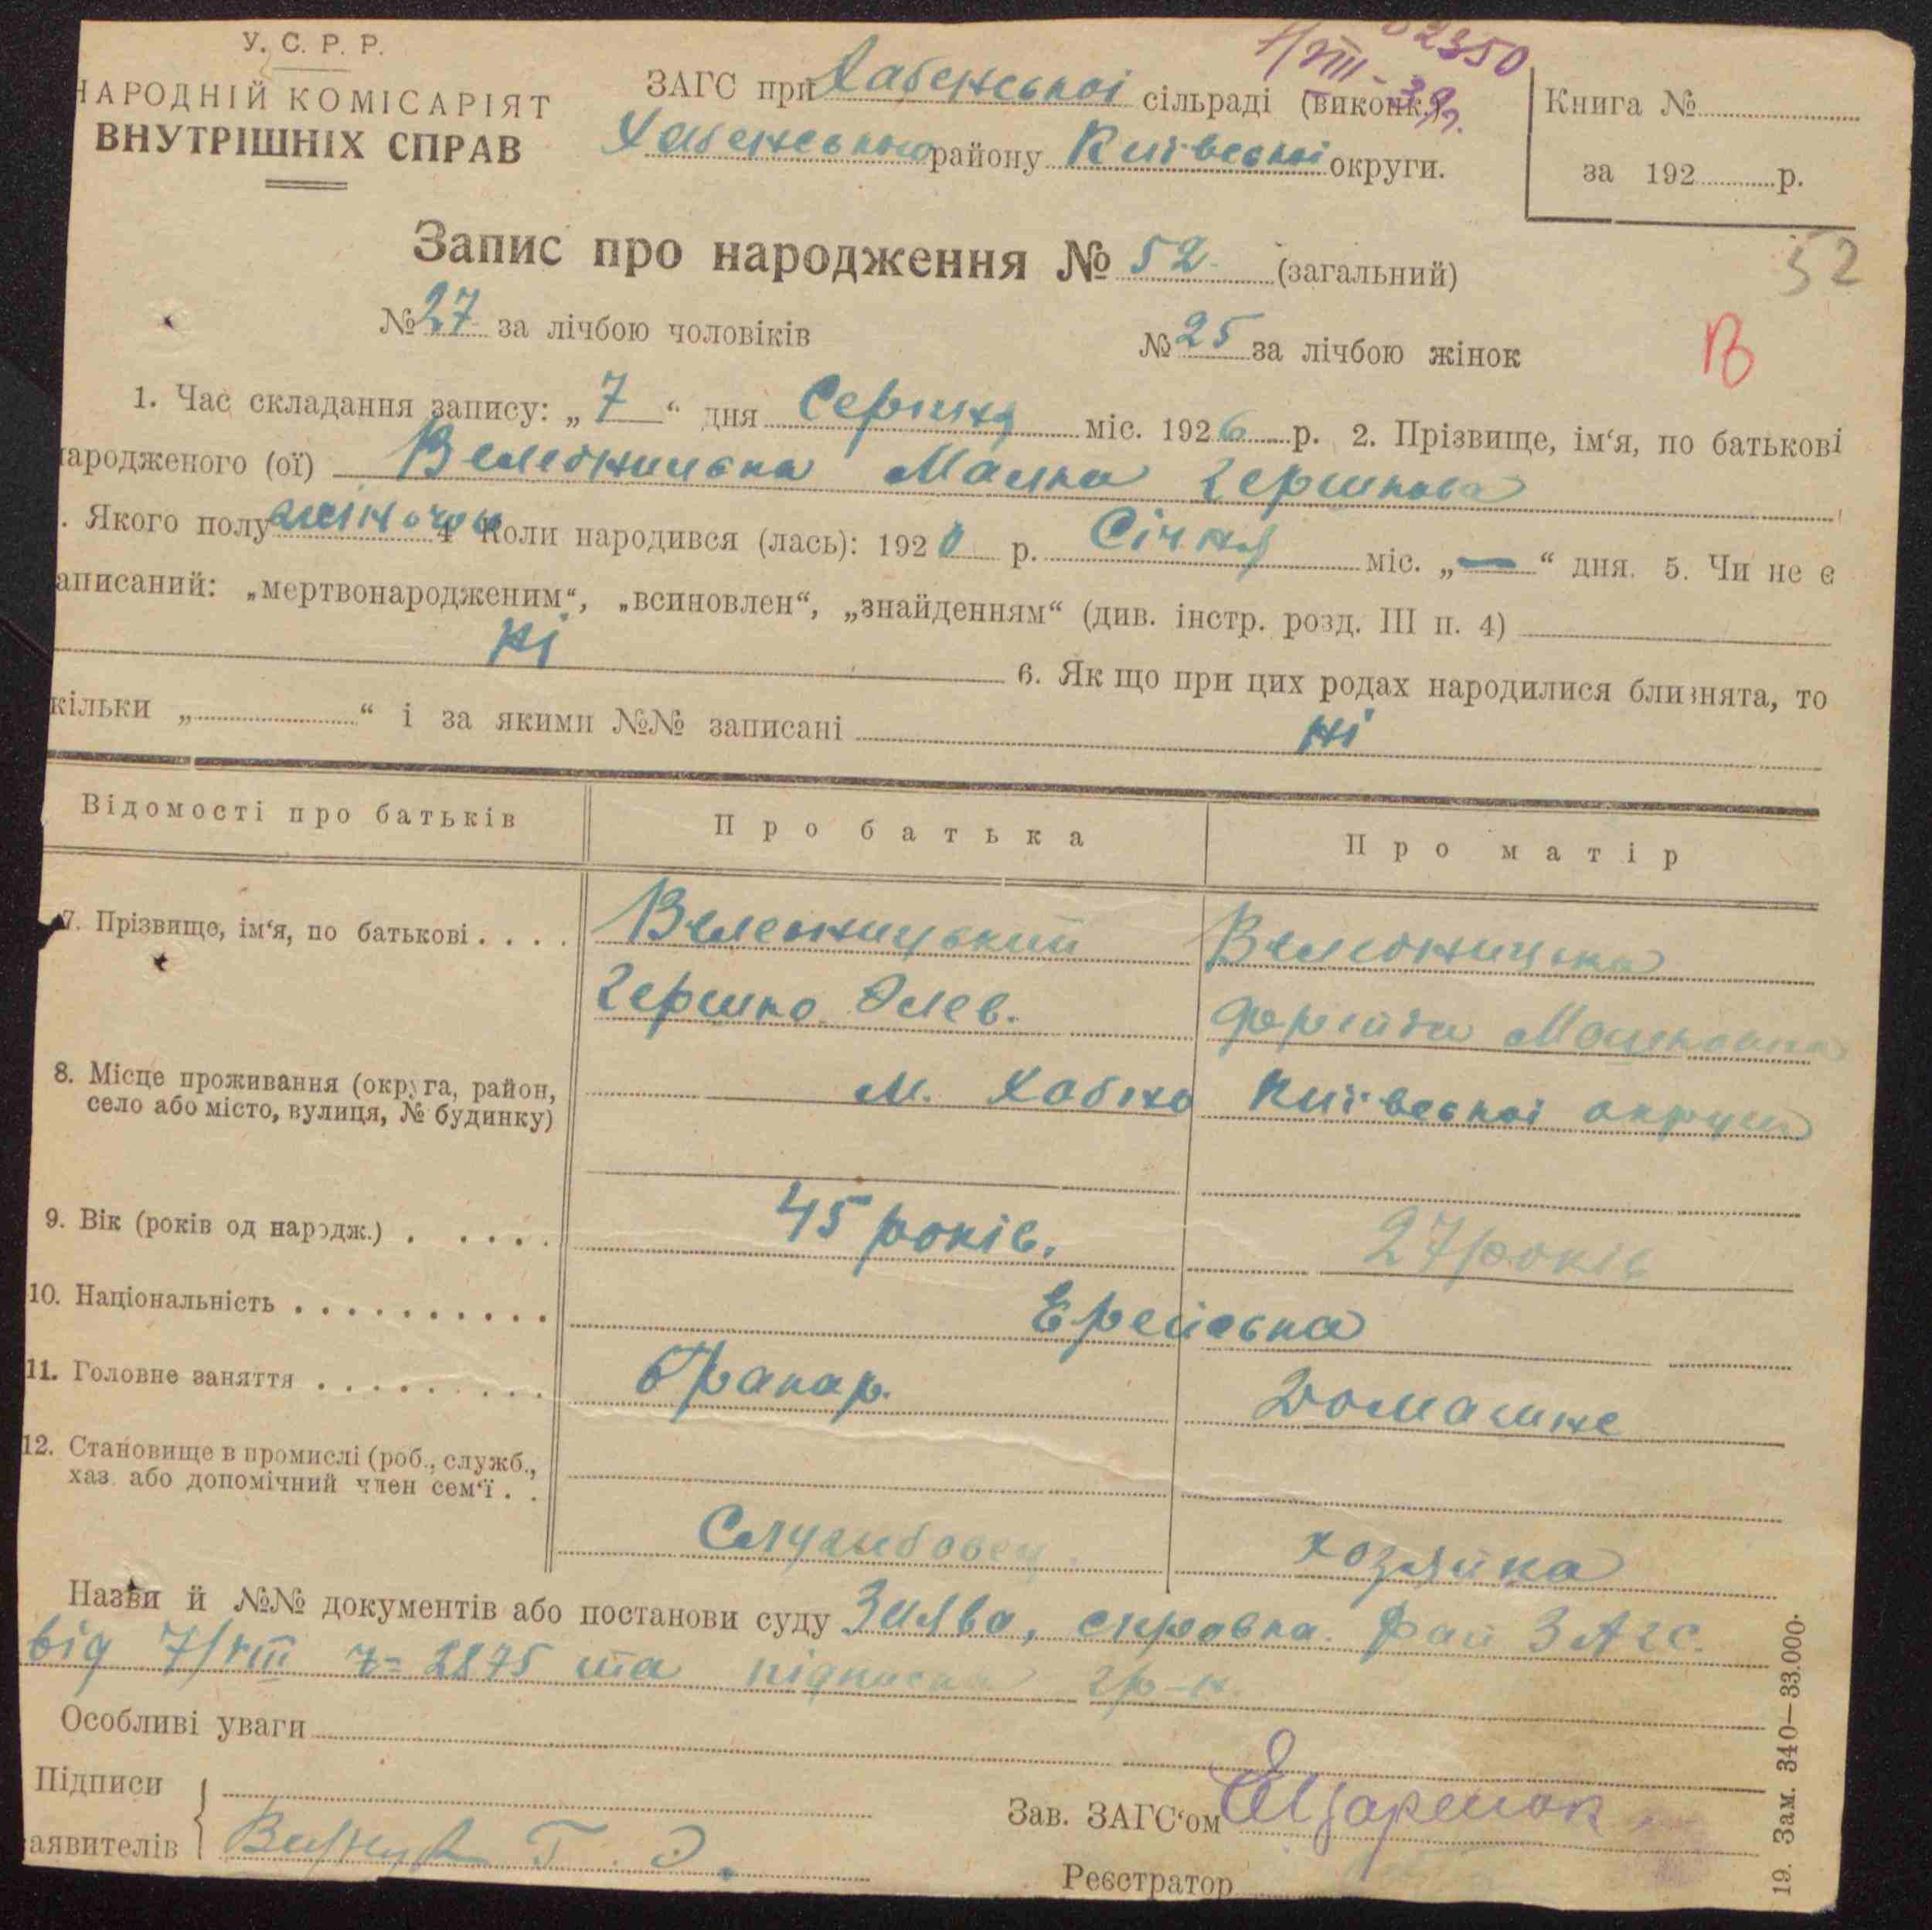 У. С. Р. Р.
НАРОДНІЙ КОМІСАРІЯТ
ВНУТРІШНІХ СПРАВ
ЗАГС при Хабенської сільраді (виконк.)
Хабенського району Київської округи.
Книга №
за 192 р.
52350
Запис про народження № 52 (загальний)
52
№ 27 за лічбою чоловіків № 25 за лічбою жінок
В
1. Час складання запису: „ 7 “ дня Серпня міс. 1926 р. 2. Прізвище, ім‘я, по батькові
народженого (ої) Малка Гершкова
. Якого полу жіночої 4 Коли народився (лась): 1920 р. Січня міс. „ — “ дня. 5. Чи не є
аписаний: „мертвонародженим“, „всиновлен“, „знайденням“ (див. інстр. розд. III п. 4)
ні 6. Як що при цих родах народилися близнята, то
кільки „ “ і за якими №№ записані ні
Відомості про батьків Про батька Про матір
7. Прізвище, ім‘я, по батькові . . . .
Гершко Фрейда
8. Місце проживання (округа, район, м. Хабно Київської округи
село або місто, вулиця, № будинку)
9. Вік (років од народж.) . . . . . 45 років. 27 років
10. Національність . . . . . . . . . . Єврейська
11. Головне заняття . . . . . . . . . Бракар. Домашнє
12. Становище в промислі (роб., служб.,
хаз. або допомічний член сем‘ї . .
Службовец. хозяйка
Назви й №№ документів або постанови суду Заява, справка Рай ЗАГС.
від 7/VIII № 2875 та підписка гр-н.
Особливі уваги
Підписи
заявителів Г. Э.
Зав. ЗАГС‘ом
Реєстратор
19. Зам. 340—33.000.